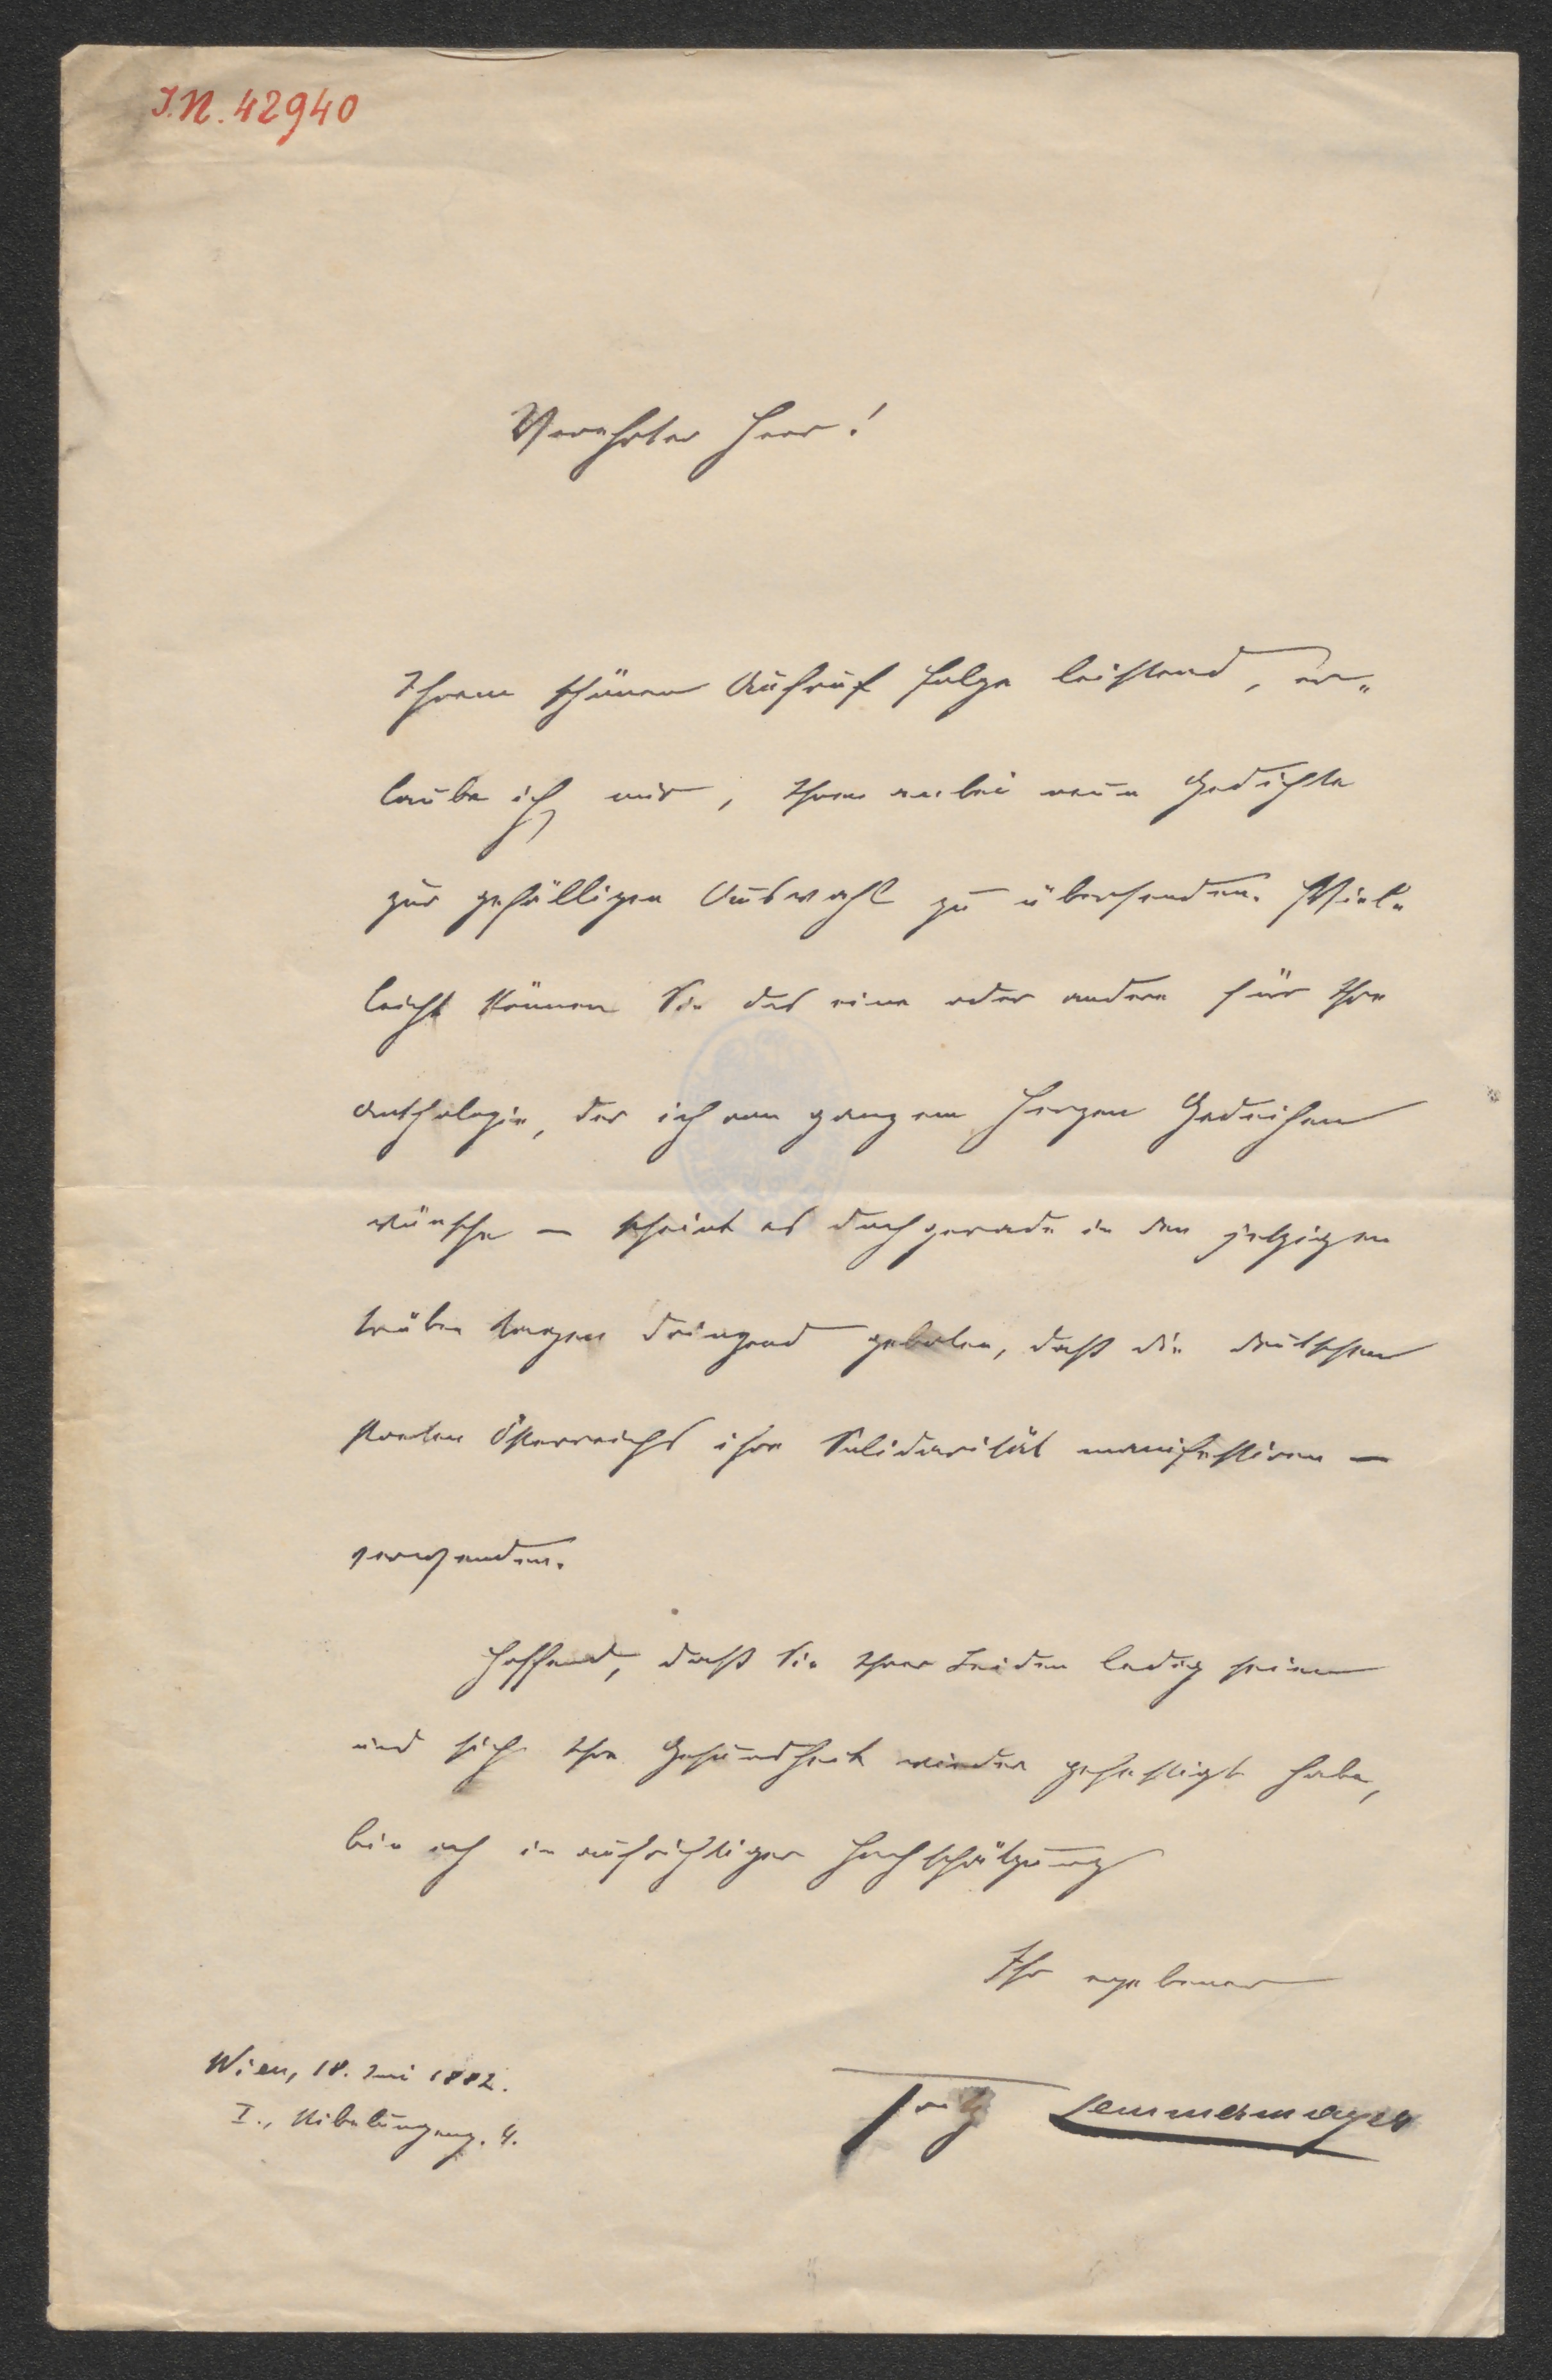 I.N. 42940
Verehrter Herr!
Ihrem schönen Aufruf Folge leistend, er-
laube ich mir, Ihnen anbei neun Gedichte
zur gefälligen Auswahl zu übersenden. Viel-
leicht können Sie das eine oder andere für Ihre
Anthologie, der ich von ganzem Herzen Gedeihen
wünsche – scheint es doch gerade in den jetzigen
trüben Tagen dringend geboten, daß die deutschen
Poeten Österreichs ihre Solidarität manifestiren –
verwenden.
Hoffend, daß Sie Ihrer Leiden ledig seien
und sich Ihre Gesundheit wieder gefestigt habe,
bin ich in aufrichtiger Hochschätzung
Ihr ergebener
Fritz Lemmermayer
Wien, 18. 1882.
I., Nibelungeng. 4.